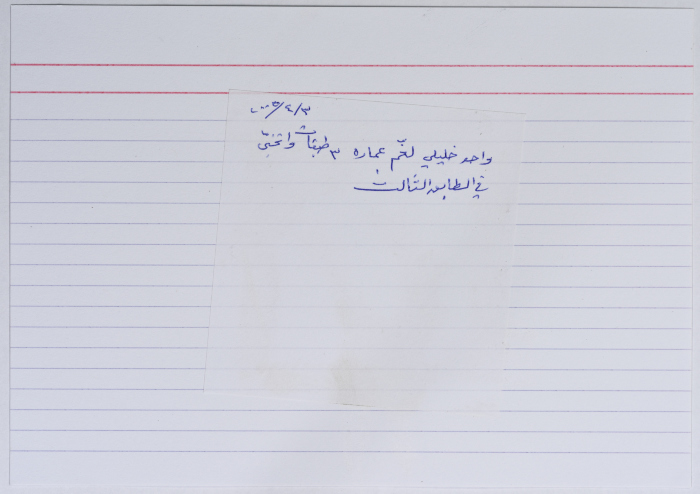 ٣/٤/٢٠٠٥
واحد خليلي لغّم عماره ٣ طبقات واتخبّى
في الطابق الثالث